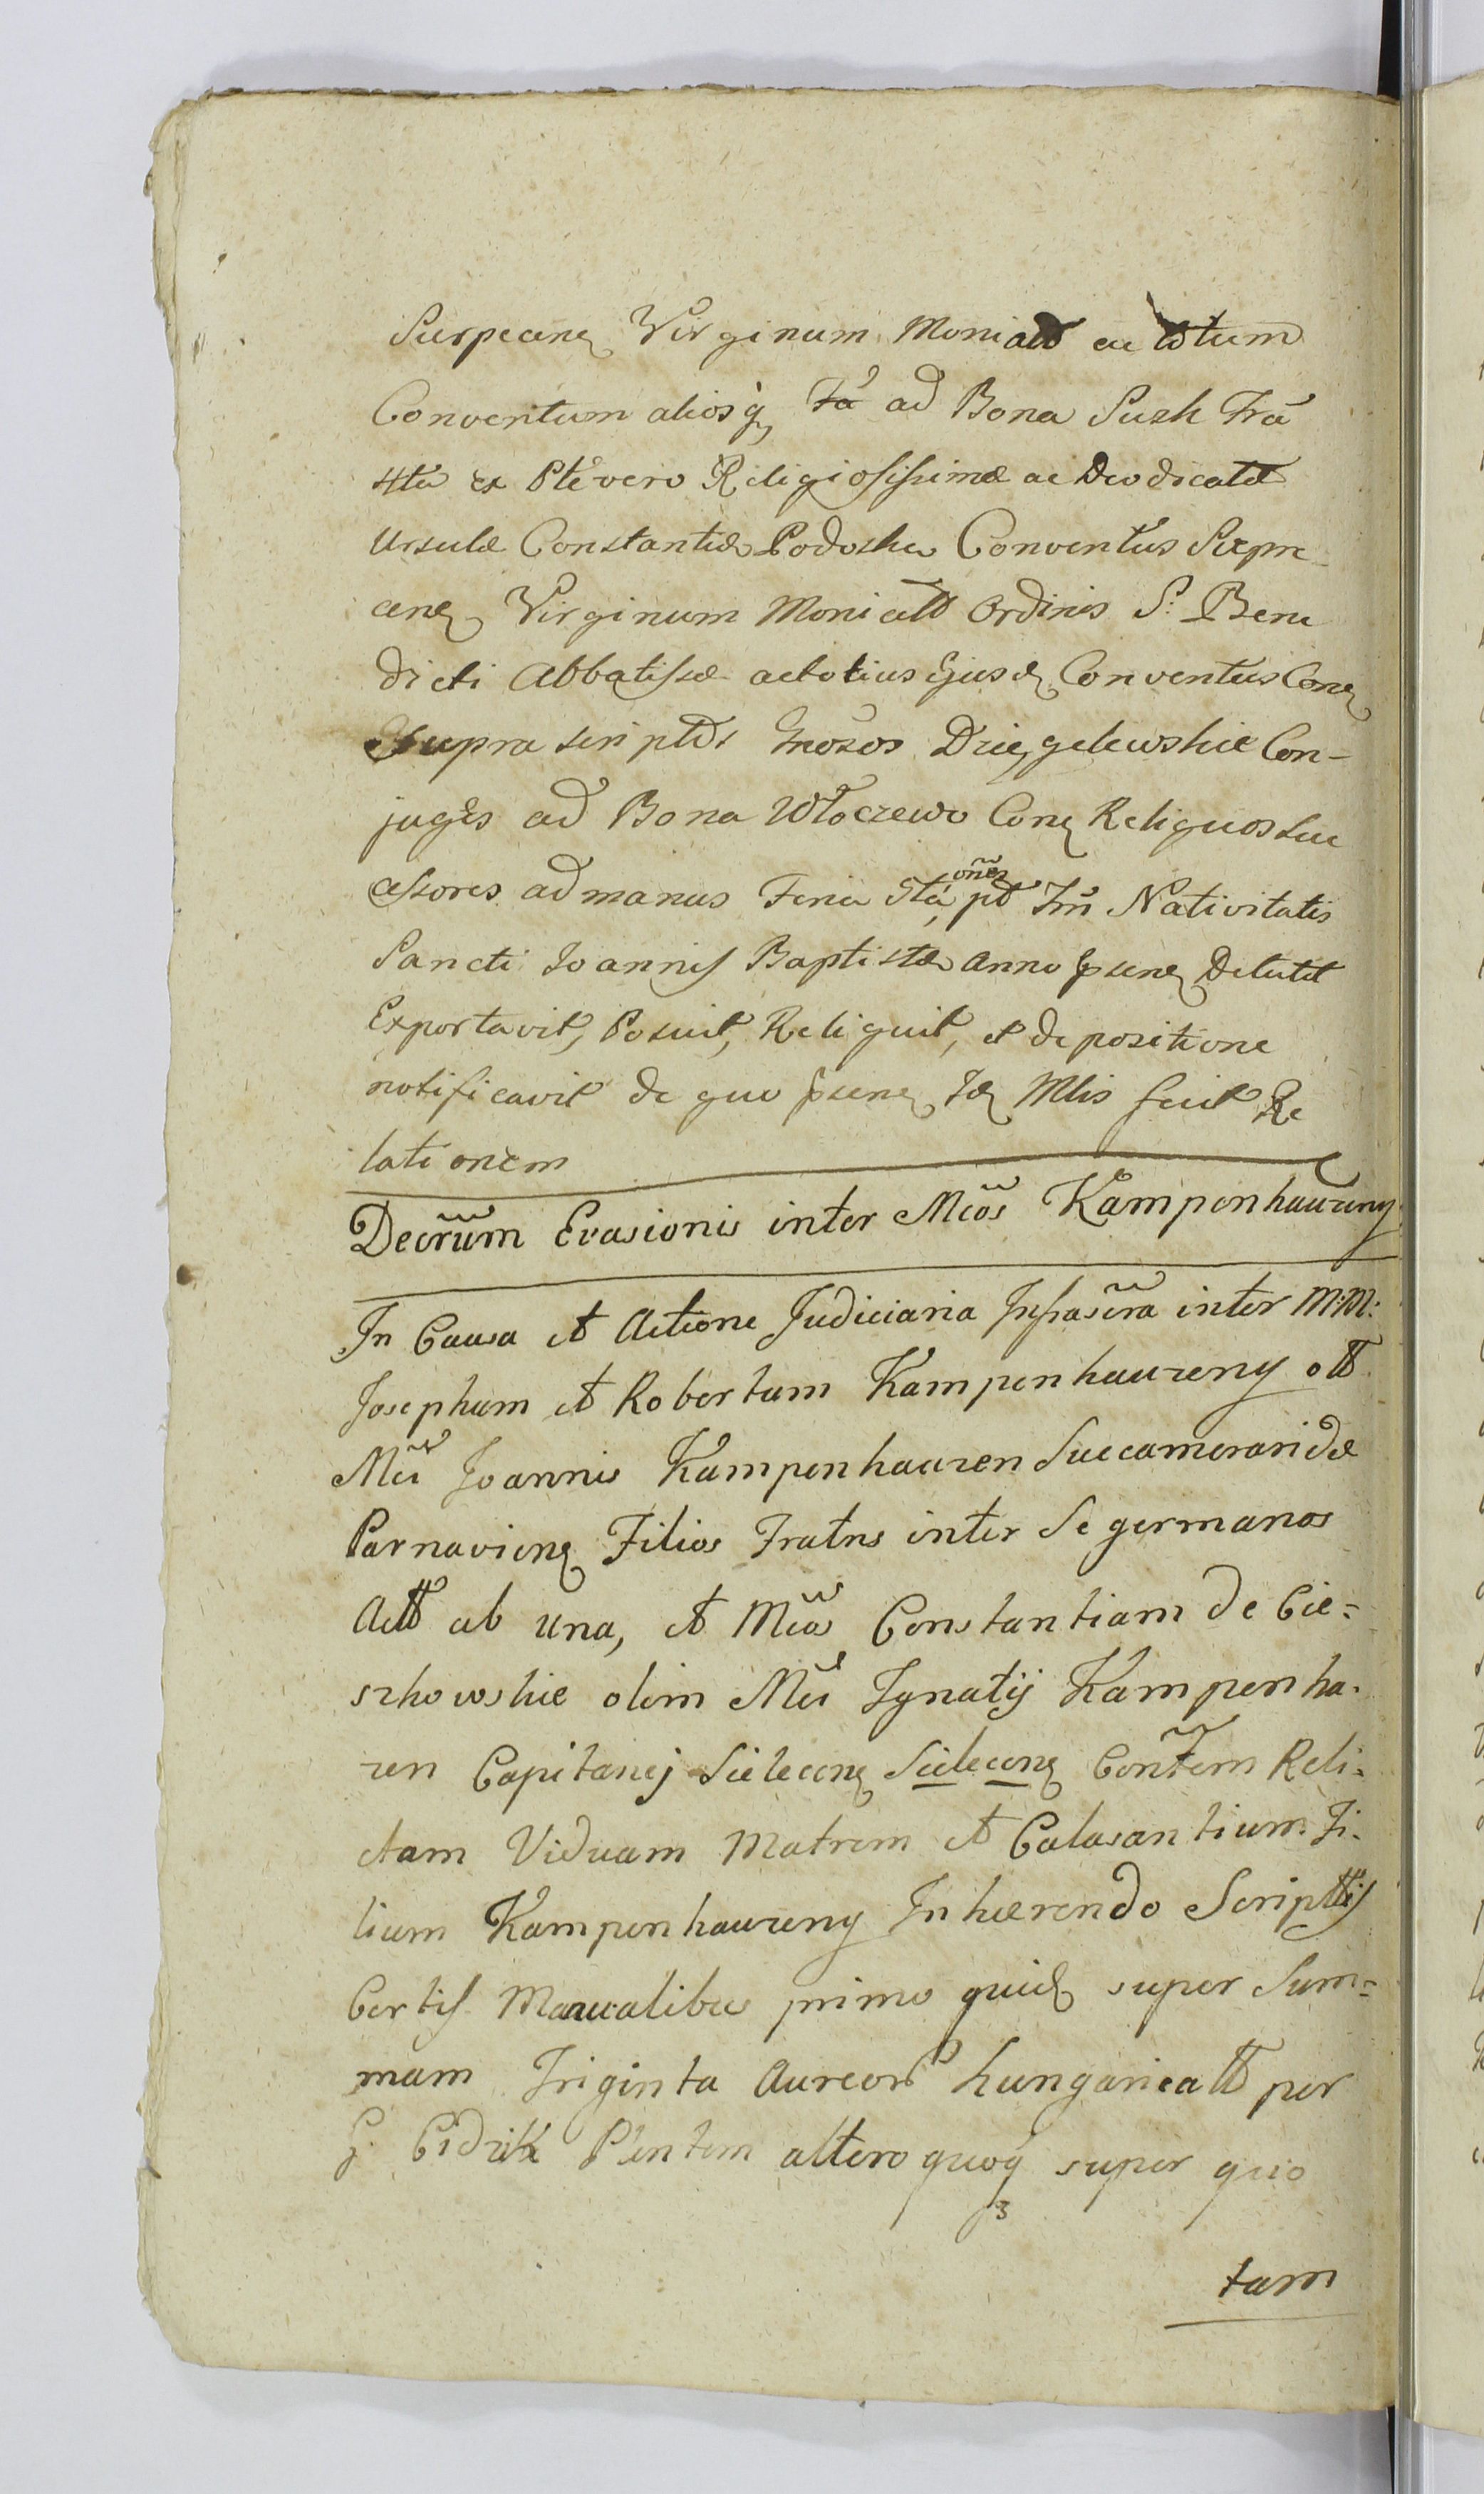 Sierpcen Virginum Monial ac totum
Conventum aliosq ad Bona Susk Fra
4ta ex Pte vero Religiosissimæ ac Deodicatæ
Ursulæ Constantiæ Podoska Conventus Sierp
cen Virginum Monialt Ordinis S: Bene
dicti Abbatissæ ac totius Ejusd Conventus Cone
Supra scriptos Gnosos Dzięgelewskie Con-
juges ad Bona Włoczewo Cone Reliquos suc
cessores ad manus Feria 4ta pt Fm Nativitatis
Sancti Joannis Baptistæ anno psene Detulit
Exportavit, Posuit, Reliquit, et de positione
notificavit de quo psene Id Mlis fecit Re
lationem
Decrum Evasionis inter Mcos Kampenhauzeny
In Causa et Actione Judiciaria Infrascra inter M:M:
Josephum et Robertum Kampenhauzeny olt
Mci Joannis Kampenhauzen Succameraridæ
Parnavien Filios Fratres inter se germanos
Actt ab una, et Mcos Constantiam de Cie=
szkowskie olim Mci Ignatij Kampenha.
zen Capitanej Sielecen Sielecen Contem Reli.
ctam Viduam Matrem et Calasantium Fi.
lium Kampenhauzeny Inhærendo Scriptis
Certis Manualibus primo quid super Sum=
mam Triginta Aureor hungaricalt per
G. Cidzik Plentem altero quoq super quo
3
tam